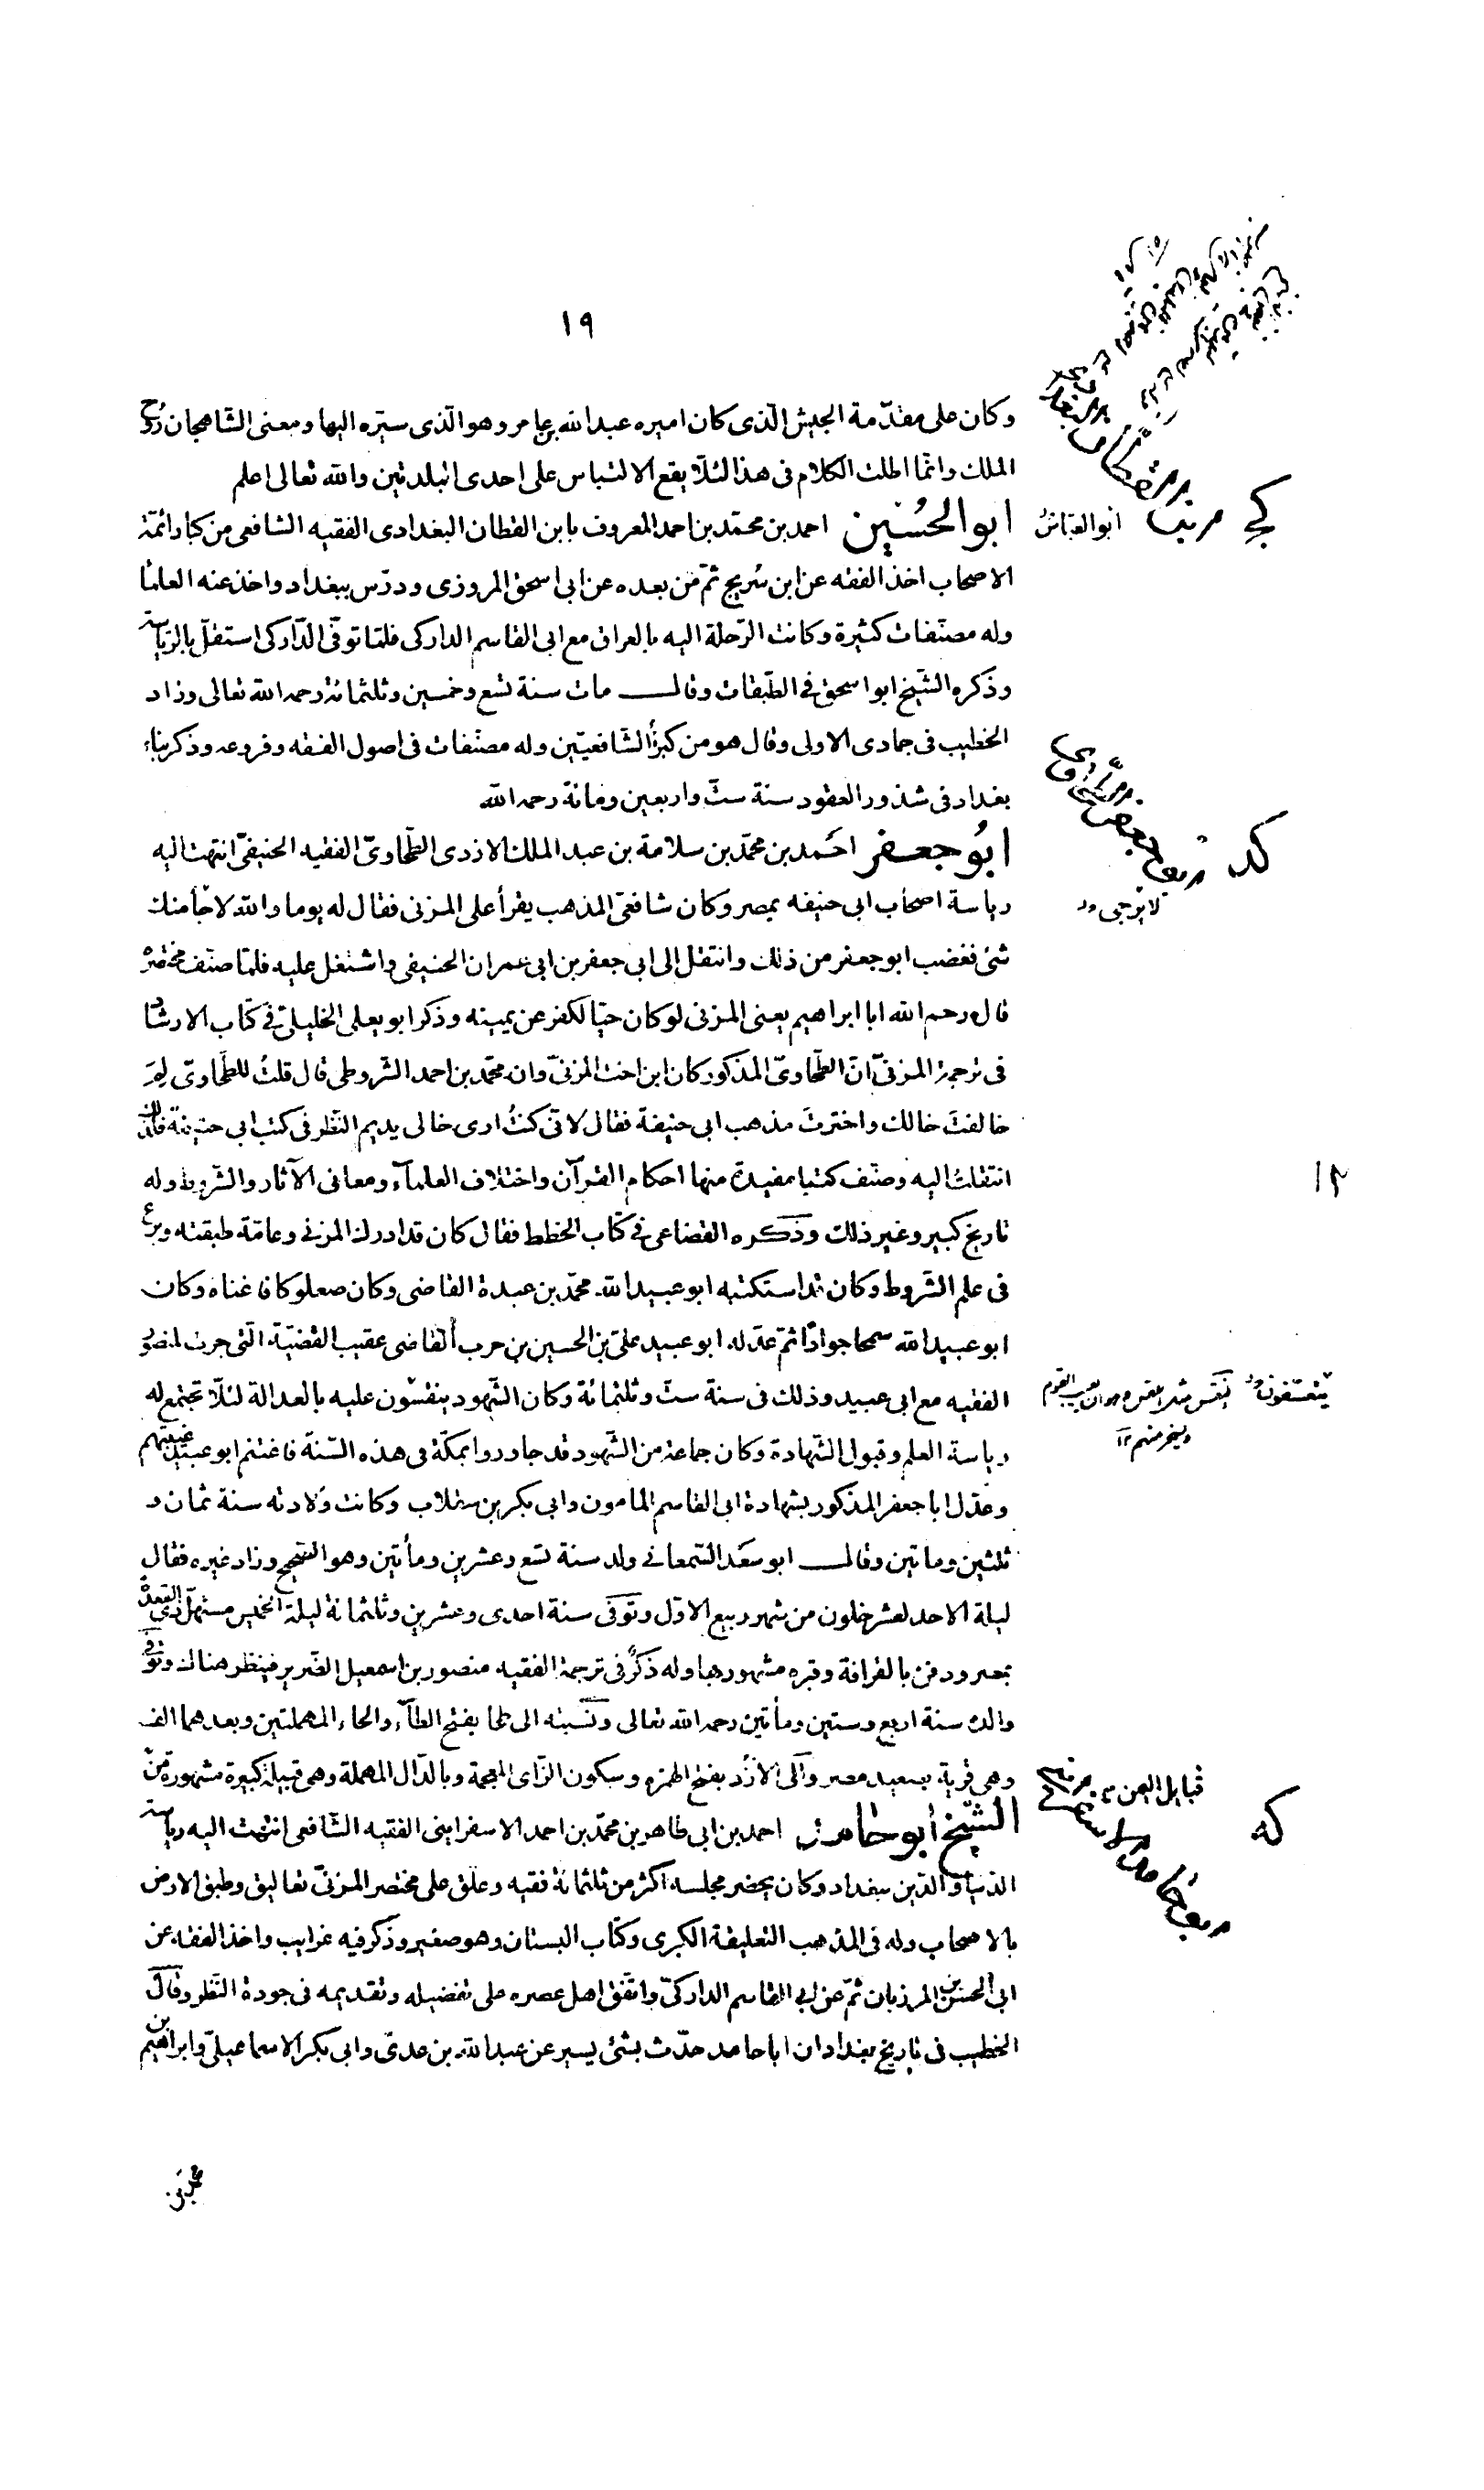 ١٩
وكان على مقدّمة الجيش الّذى كان اميره عبد الله بن عامر وهو الّذى سيّره اليها ومعنى الشّاهجان رُوح
الملك وانّما اطلت الكلام فى هذا لئلّا يقع الالتباس على احدى البلدتين والله تعالى اعلم
ابو الحُسَين احمد بن محمّد بن احمد المعروف بابن القطان البغدادى الفقيه الشافعى من كبار ائمّة
ابو العبّاس
الاصحاب اخذ الفقه عن ابن سُريج ثمّ من بعده عن ابى اسحق المروزى ودرّس ببغداد واخذ عنه العلمأ
وله مصنّفات كثيرة وكانت الرّحلة اليه بالعراق مع ابى القاسم الداركى فلمّا توفّى الدّاركى استقلّ بالرّياسة
وذكره الشّيخ ابو اسحق فى الطّبقات وقال مات سنة تسع وخمسين وثلثمائة رحمه الله تعالى وزاد
الخطيب فى جمادى الاولى وقال هو من كبرأ الشّافعيّين وله مصنّفات فى اصول الفقه وفروعه وذكر بناء
بغداد فى شذور العقود سنة ستّ واربعين ومائة رحمه الله
ابُو جعفر احَمد بن محمّد بن سلامة بن عبد الملك الازدى الطّحاوىّ الفقيه الحنيفىّ انتهت اليه
كد
رياسة اصحاب ابى حنيفه بمصر وكان شافعىّ المذهب يقرأ على المزنى فقال له يوما والله لا جأ منك
شئ فغضب ابو جعفر من ذلك وانتقل الى ابى جعفر بن ابى عمران الحنيفى واشتغل عليه فلمّا صنّف مختصره
قال رحم الله ابا ابراهيم يعنى المزنى لو كان حيّا لكفر عن يمينه وذكر ابو يعلى الخليلىّ فى كتاب الارشاد
فى ترجمة المزنىّ انّ الطّحاوىّ المذكور كان ابن اخت المزنىّ وان محمّد بن احمد الشّروطى قال قلتُ للطّحاوىّ لِمَ
خالفتَ خالك واخترتَ مذهب ابى حنيفة فقال لانّى كنتُ ارى خالى يديم النّظر فى كتب ابى حنيفة فلذلك
انتقلتُ اليه وصنّف كتبا مفيدة منها احكام القرآن واختلاف العلمآء ومعانى الآثار والشّروط وله
١٢
تاريخ كبير وغير ذلك وذكره القضاعى فى كتاب الخطط فقال كان قد ادرك المزنى وعامّة طبقته وبرع
فى علم الشّروط وكان قد استكتبه ابو عبيد الله محمّد بن عبدة القاضى وكان صعلوكا فاغناه وكان
ابو عبيد الله سمحا جوادًا ثمّ عدّله ابو عبيد علىّ بن الحسين بن حرب القاضى عقيب القضيّة الّتى جرت لمنصور
الفقيه مع ابى عبيد وذلك فى سنة ستّ وثلثمائة وكان الشّهود ينفسّون عليه بالعدالة لئلّا تجتمع له
رياسة العلم وقبول الشّهادة وكان جماعة من الشّهود قد جاوروا بمكّة فى هذه السّنة فاغتنم ابو عبيد غيبتهم
وعدّل ابا جعفر المذكور بشهادة ابى القاسم المامون وابى بكر بن سقلاب وكانت ولادته سنة ثمان و
ثلثين وماتين وقال ابو سعَد السّمعانى ولد سنة تسع وعشرين ومأتين وهو الصّحيح وزاد غيره فقال
ليلة الاحد لعشر خلون من شهر ربيع الاوّل وتوفّى سنة احدى وعشرين وثلثمائة ليلة الخميس مستهلّ ذى القعدة
بمصر ودفن بالقرافة وقبره مشهور بها وله ذكرٌ فى ترجمة الفقيه منصور بن اسمعيل الضّرير فينظر هناك وتوفى
والده سنة اربع وستين ومأتين رحمه الله تعالى ونسبته الى طحا بفتح الطّآء والحاء المهملتين وبعدهما الف
وهى قرية بصعيد مصر وآلى الازد بفتح الهمزه وسكون الزّاى المعجمة وبالدّال المهملة وهى قبيلة كبيرة مشهورة من
قبايل اليمن
الشّيخ ابو حامد احمد بن ابى طاهر بن محمّد بن احمد الاسفراينى الفقيه الشّافعى انتهت اليه رياسة
كه
الدّنيا والدّين ببغداد وكان يحضر مجلسه اكثر من ثلثمائة فقيه وعلّق على مختصر المزنىّ تعاليق وطبق الارض
بالاصحاب وله فى المذهب التعليقة الكبرى وكتاب البستان وهو صغير وذكر فيه غرايب واخذ الفقه عن
ابى الحسن بن المرزبان ثمّ عن ابى القاسم الداركىّ واتّفق اهل عصره على تفضيله وتقديمه فى جودة النّظر وقال
الخطيب فى تاريخ بغداد ان ابا حامد حدّث بشئ يسير عن عبد الله بن عدىّ وابى بكر الاسماعيلىّ وابراهيم بن
محمد بن